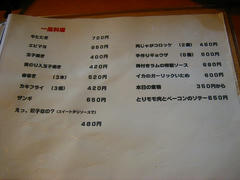 一品料理
牛たたき 750円
エビマヨ 650円
玉子焼き 400円
明のり入玉子焼き 420円
串焼き (3本) 520円
カキフライ (3個) 420円
ザンギ 650円
えっ、餃子なの？(スイートチリソースで)
480円
肉じゃがコロッケ (2個) 450円
手作りギョウザ (6個) 400円
骨付きラムの特製ソース 690円
イカのガーリックいため 600円
本日の煮物 350円から
とりモモ肉とベーコンのソテー 650円